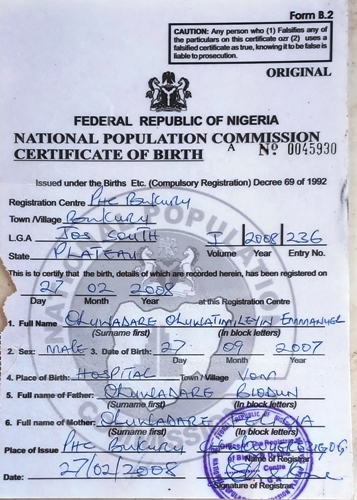 Form B.2
CAUTION: Any person who (1) Falsifies any of
the particulars on this certificate ozr (2) uses a
falsified certificate as true, knowing it to be false is
liable to prosecution.
ORIGINAL
FEDERAL REPUBLIC OF NIGERIA
NATIONAL POPULATION COMMISSION
CERTIFICATE OF BIRTH A No 0045930
Issued under the Births Etc. (Compulsory Registration) Decree 69 of 1992
Registration Centre PHC BUKURU
Town /Village BUKURU
L.G.A JOS SOUTH I 2008 236
State PLATEAU Volume Year Entry No.
This is to certify that the birth, details of which are recorded herein, has been registered on
27 02 2008
Day Month Year at this Registration Centre
1. Full Name OLUWADARE OLUWATIMILEYIN EMMANUEL
(Surname first) (In block letters)
2. Sex: MALE 3. Date of Birth: 27 09 2007
Day Month Year
4. Place of Birth: HOSPITAL Town / Village VOM
5. Full name of Father: OLUWADARE BIODUN
(Surname first) (In block letters)
6. Full name of Mother: OLUWADARE
(Surname first) (In block letters)
Place of Issue PHC BUKURU
Name of Registrar
Date: 27/02/2008
Signature of Registrar